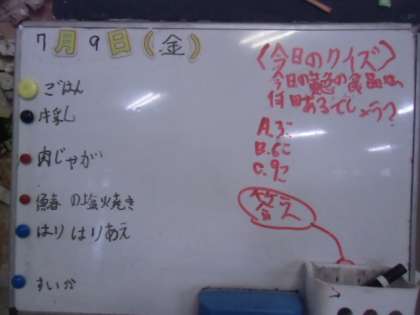 7月9日(金)
ごはん
牛乳
肉じゃが
の塩焼き
はりはりあえ
すいか
〈今日のクイズ〉
今日の
何コあるでしょう?
A.3こ
B.6こ
C.9こ
答え